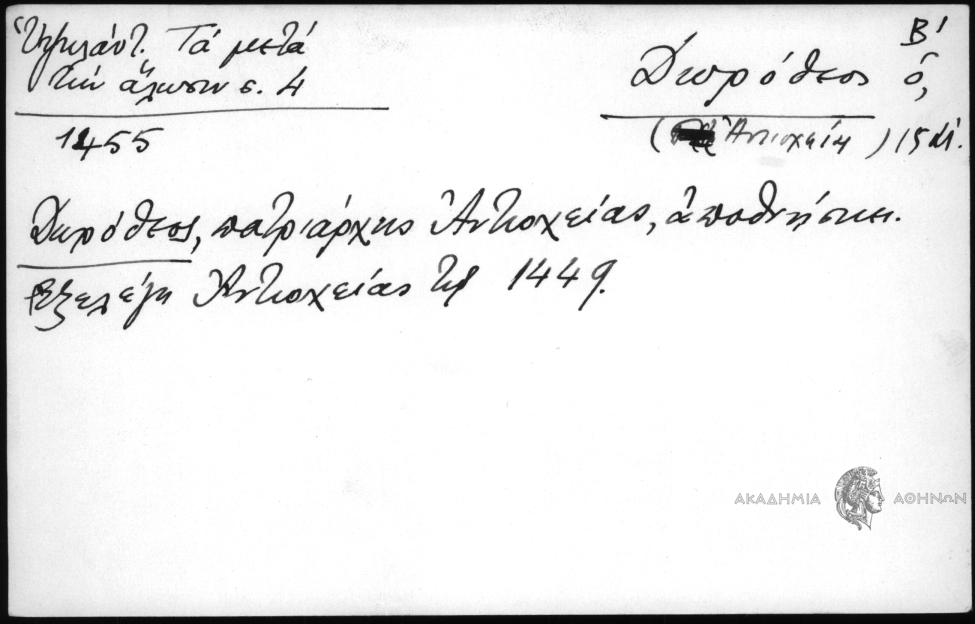 Ὑψηλάντ. Τά μετά
τήν ἅλωσιν σ. 4
1455
Δωρόθεος ὁ, Β'
( Ἀντιοχείας ) 15 αἰ.
Δωρόθεος, πατριάρχης Ἀντιοχείας, ἀποθνήσκει.
Ἐξελέγη Ἀντιοχείας τῷ 1449.
ΑΚΑΔΗΜΙΑ ΑΘΗΝΩΝ